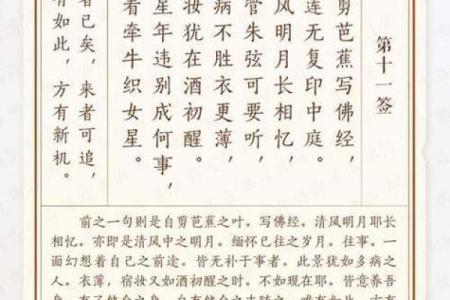 第十一签
剪芭蕉写佛经，
无复印中庭。
风明月长相忆，
管朱弦可要听，
病不胜衣更薄，
妆犹在酒初醒。
星年违别成何事，
者牵牛织女星。
者已矣，来者可追，
有如此，方有新机。
前之一句则是自剪芭蕉之叶。写佛经。清风明月耶长
相忆。亦即是清风中之明月。缅怀已往之岁月。往事。一
面幻想着自己之前途。皆无补于事者。此景犹如多病之
人。衣薄，宿妆又如酒初醒之时。不如现在耶。皆意养吾